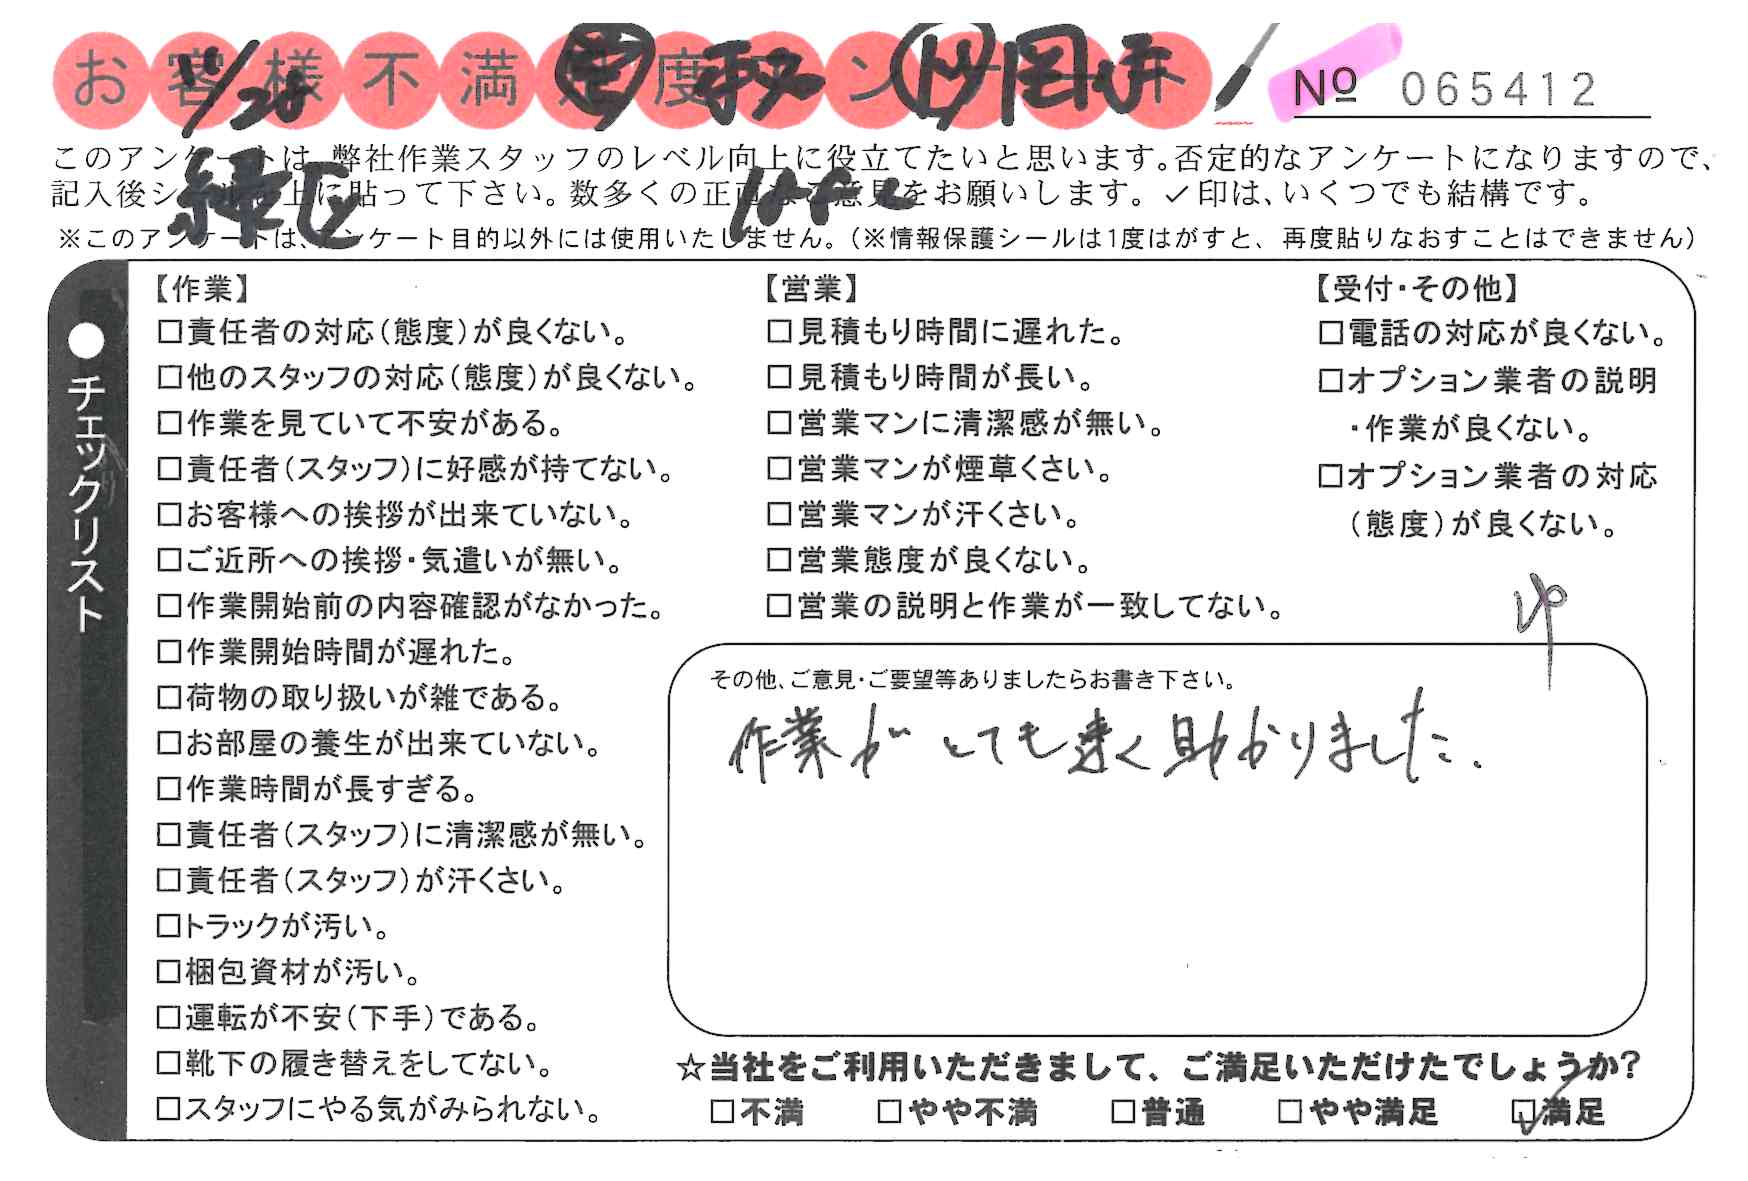 お客様不満足度アンケート
№ 065412
11/28
緑区
このアンケートは、弊社作業スタッフのレベル向上に役立てたいと思います。否定的なアンケートになりますので、
記入後シールを上に貼って下さい。数多くの正直なご意見をお願いします。✓印は、いくつでも結構です。
※このアンケートは、アンケート目的以外には使用いたしません。(※情報保護シールは1度はがすと、再度貼りなおすことはできません)
●チェックリスト
【作業】
□責任者の対応(態度)が良くない。
□他のスタッフの対応(態度)が良くない。
□作業を見ていて不安がある。
□責任者(スタッフ)に好感が持てない。
□お客様への挨拶が出来ていない。
□ご近所への挨拶・気遣いが無い。
□作業開始前の内容確認がなかった。
□作業開始時間が遅れた。
□荷物の取り扱いが雑である。
□お部屋の養生が出来ていない。
□作業時間が長すぎる。
□責任者(スタッフ)に清潔感が無い。
□責任者(スタッフ)が汗くさい。
□トラックが汚い。
□梱包資材が汚い。
□運転が不安(下手)である。
□靴下の履き替えをしてない。
□スタッフにやる気がみられない。
【営業】
□見積もり時間に遅れた。
□見積もり時間が長い。
□営業マンに清潔感が無い。
□営業マンが煙草くさい。
□営業マンが汗くさい。
□営業態度が良くない。
□営業の説明と作業が一致してない。
【受付・その他】
□電話の対応が良くない。
□オプション業者の説明
・作業が良くない。
□オプション業者の対応
(態度)が良くない。
その他、ご意見・ご要望等ありましたらお書き下さい。
作業がとても速く助かりました.
☆当社をご利用いただきまして、ご満足いただけたでしょうか?
□不満 □やや不満 □普通 □やや満足 ☑満足